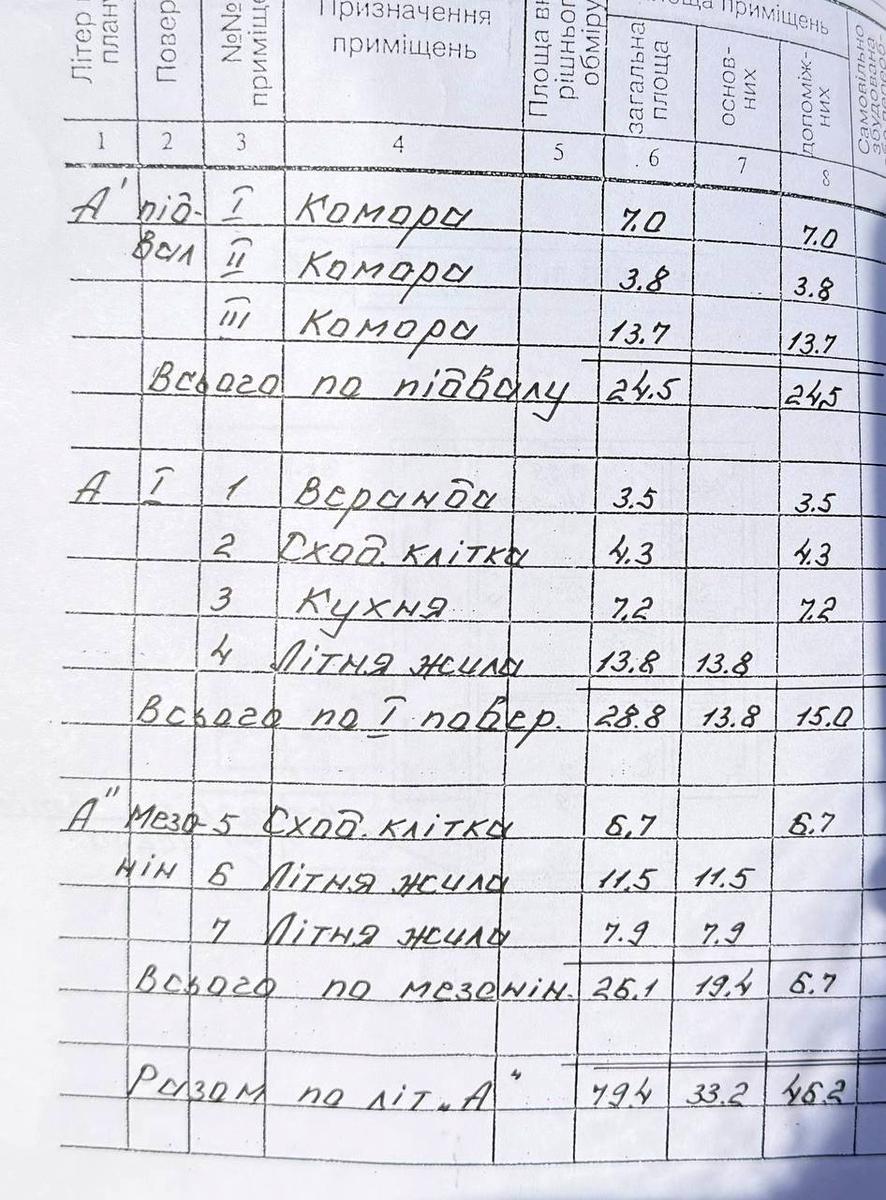 Літер
плану
Повер
№№
приміще
Призначення
приміщень
Площа вн
рішнього
обміру
площа приміщень
загальна
площа
основ-
них
допоміж-
них
Самовільно
збудована
1 2 3 4 5 6 7 8
А' під- I Комора 7.0 7.0
вал II Комора 3.8 3.8
III Комора 13.7 13.7
Всього по підвалу 24.5 24.5
А I 1 Веранда 3.5 3.5
2 Сход. клітка 4.3 4.3
3 Кухня 7.2 7.2
4 Літня жила 13.8 13.8
Всього по I повер. 28.8 13.8 15.0
А" мезо- 5 Сход. клітка 6.7 6.7
нін 6 Літня жила 11.5 11.5
7 Літня жила 7.9 7.9
Всього по мезенін. 26.1 19.4 6.7
Разом по літ „А" 79.4 33.2 46.2